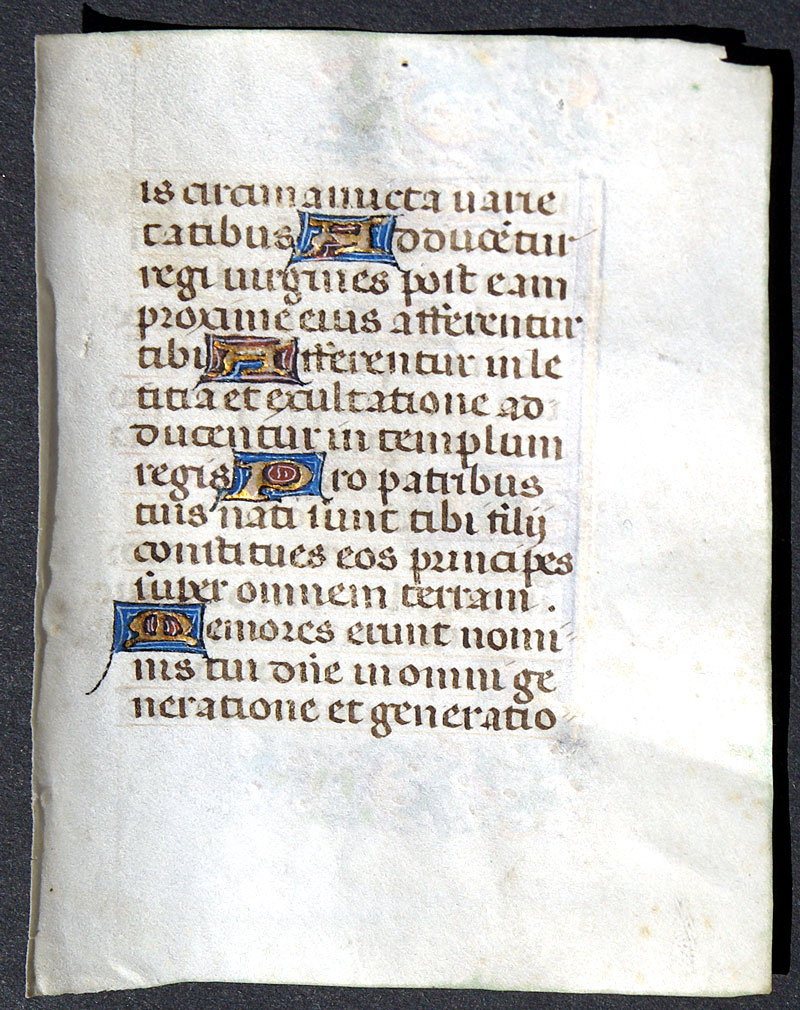 is circumamicta varie
tatibus Adducẽtur
regi virgines post eam
proxime eius afferentur
tibi Afferentur in le
titia et exultatione ad
ducentur in templum
regis Pro patribus
tuis nati sunt tibi filij
constitues eos principes
super omnem terram .
Memores erunt nomi
nis tui dñe in omni ge
neratione et generatio